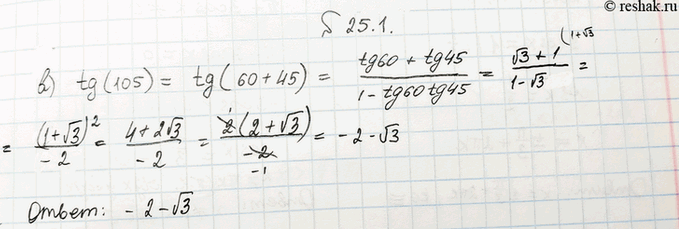 © reshak.ru
§ 25.1.
в) tg(105) = tg(60+45) = \frac{tg60 + tg45}{1 - tg60 tg45} = \frac{√3 + 1}{1 - √3} ^{(1+√3} =
= \frac{(1+√3)^2}{-2} = \frac{4+2√3}{-2} = \frac{2(2+√3)}{-2} ^{1} _{-1} = -2-√3
Ответ: -2-√3